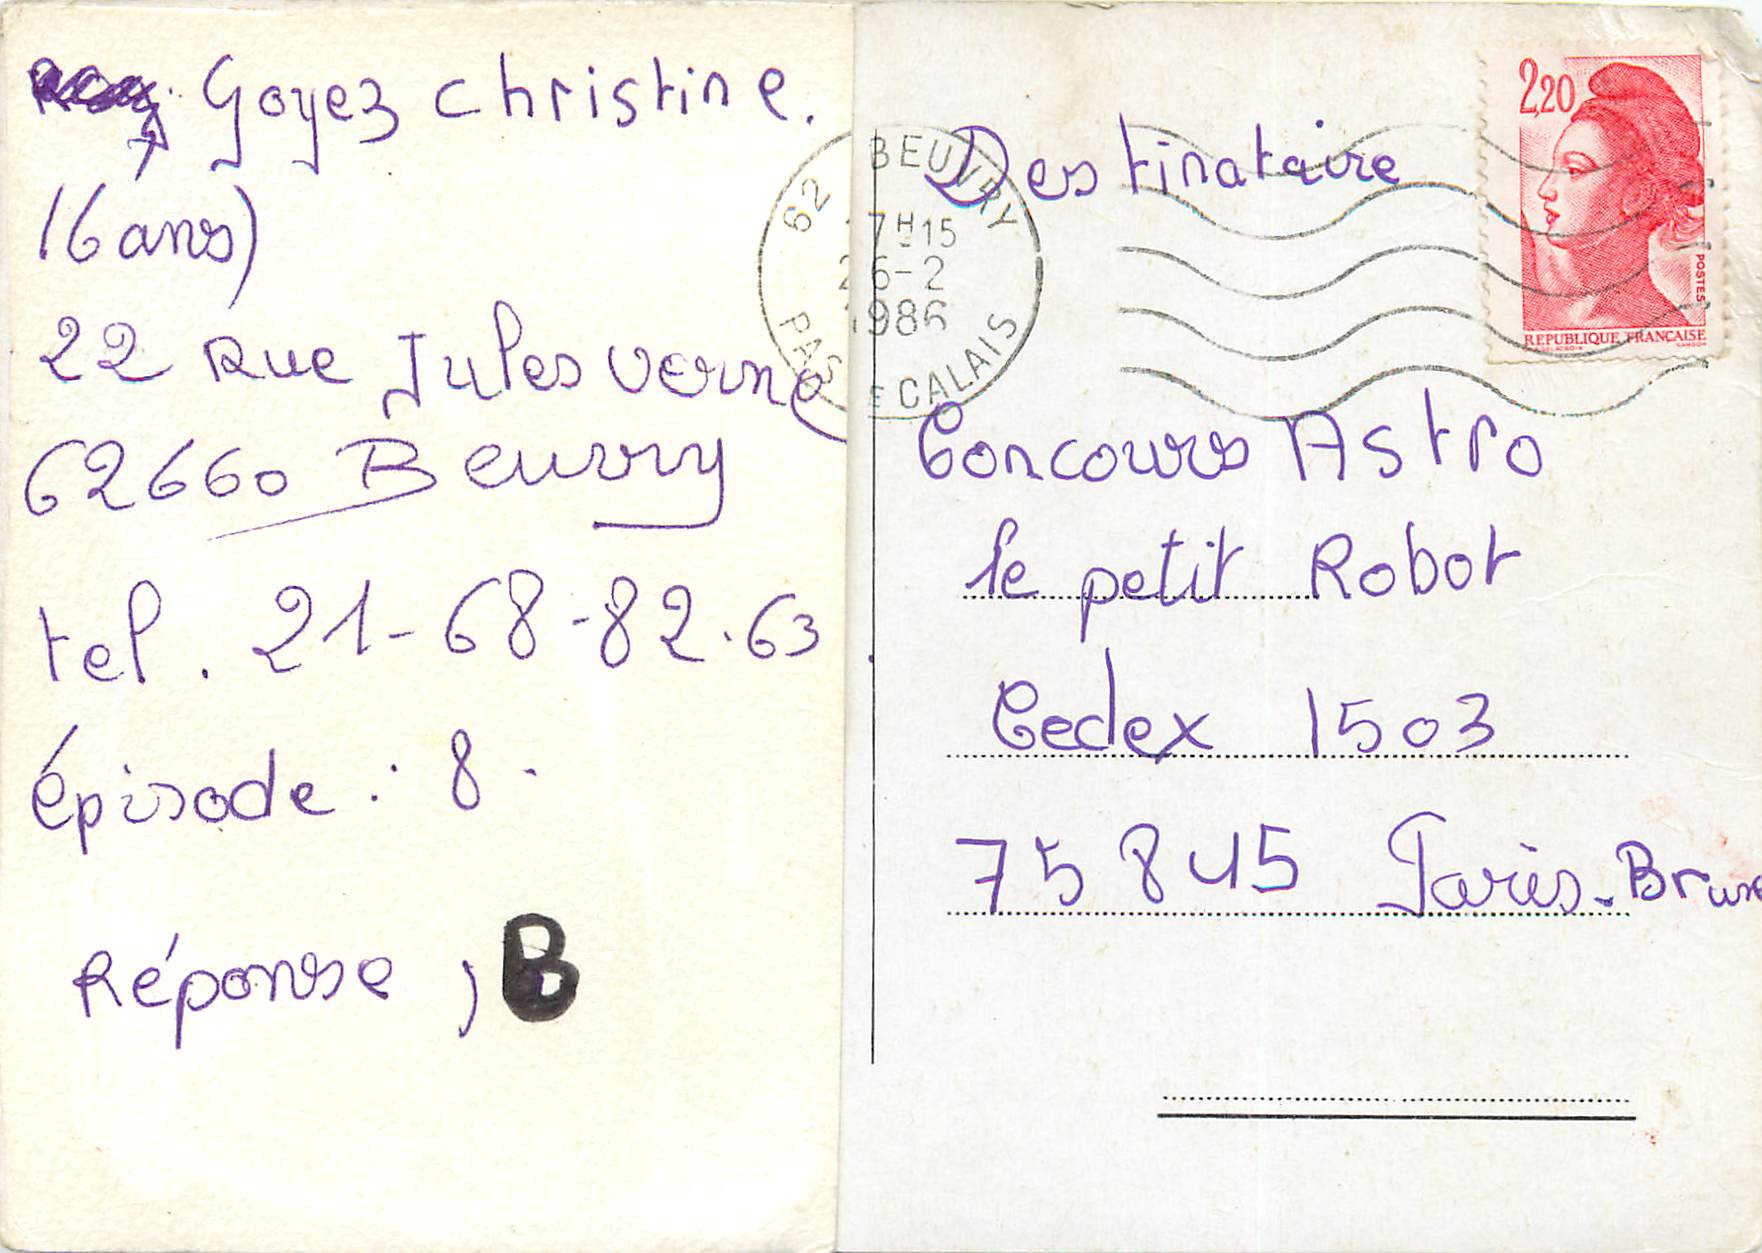 Goyez Christine.
16 ans)
22 Rue Jules Verne
62660 Beuvry
tel. 21-68-82.63
épisode : 8.
Réponse , B
62 BEUVRY
7H15
26-2
1986
PAS CALAIS
2,20
POSTES
REPUBLIQUE FRANÇAISE
Destinataire
Concours Astro
le petit Robot
Cedex 1503
75 845 Paris. Brune